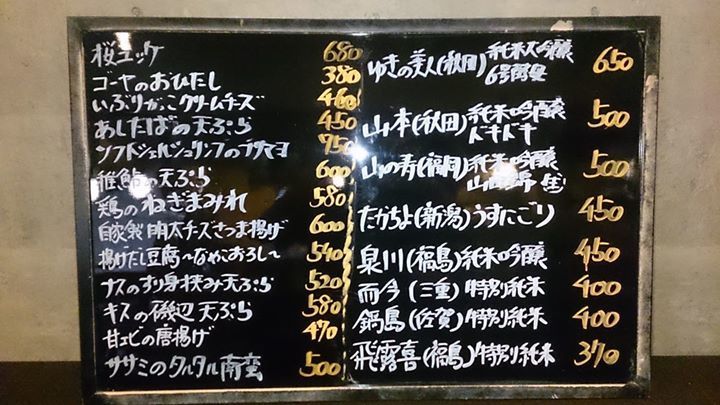 桜ユッケ 680
ゴーヤのおひたし 380
いぶりがっこクリームチーズ 460
あしたばの天ぷら 450
ソフトシェルシュリンプの 750
稚鮎の天ぷら 600
鶏のねぎまみれ 580
自家製 明太チーズさつま揚げ 600
揚げだし豆腐〜なめこおろし〜 540
ナスのすり身挟み天ぷら 520
キスの磯辺天ぷら 580
甘エビの唐揚げ 470
ササミのタルタル南蛮 500
ゆきの美人(秋田)純米大吟醸 650
6号酵母
山本(秋田)純米吟醸 500
ドキドキ
山の寿(福岡)純米吟醸 500
山田錦 生
たかちよ(新潟)うすにごり 450
泉川(福島)純米吟醸 450
而今(三重)特別純米 400
鍋島(佐賀)特別純米 400
飛露喜(福島)特別純米 370